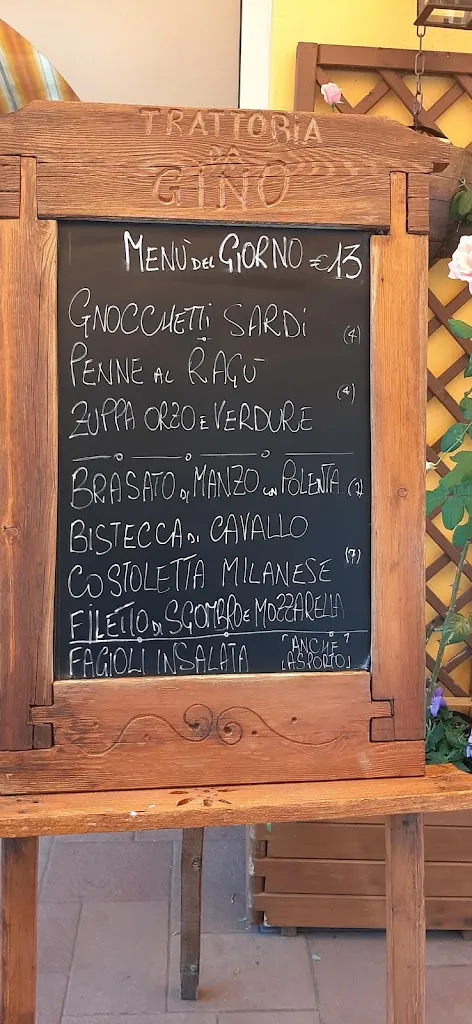 TRATTORIA
DA
GINO
MENÙ DEL GIORNO €13
GNOCCHETTI SARDI
(4)
PENNE AL RAGÙ
(4)
ZUPPA ORZO E VERDURE
BRASATO DI MANZO CON POLENTA
BISTECCA DI CAVALLO
(7)
COSTOLETTA MILANESE
FILETTO DI SGOMBRO E MOZZARELLA
FAGIOLI INSALATA
ANCHE
ASPORTO